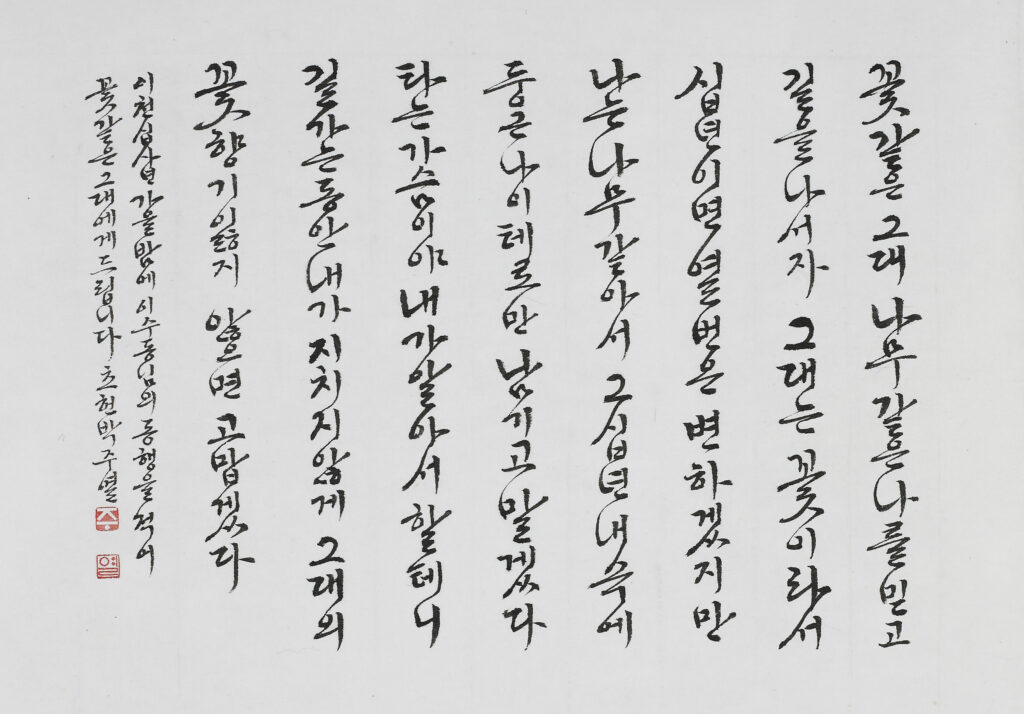 꽃같은 그대 나무같은 나를 믿고
길을 나서자 그대는 꽃이라서
십년이면 열번은 변하겠지만
난 나무같아서 그 십년 내 속에
둥근 나이테로만 남기고 말겠다
타는 가슴이야 내가 알아서 할테니
길가는 동안 내가 지치지 않게 그대의
꽃향기 잃지 않으면 고맙겠다
이천십삼년 가을밤에 이수동님의 동행을 적어
꽃같은 그대에게 드립니다 초헌 박주열
주
열